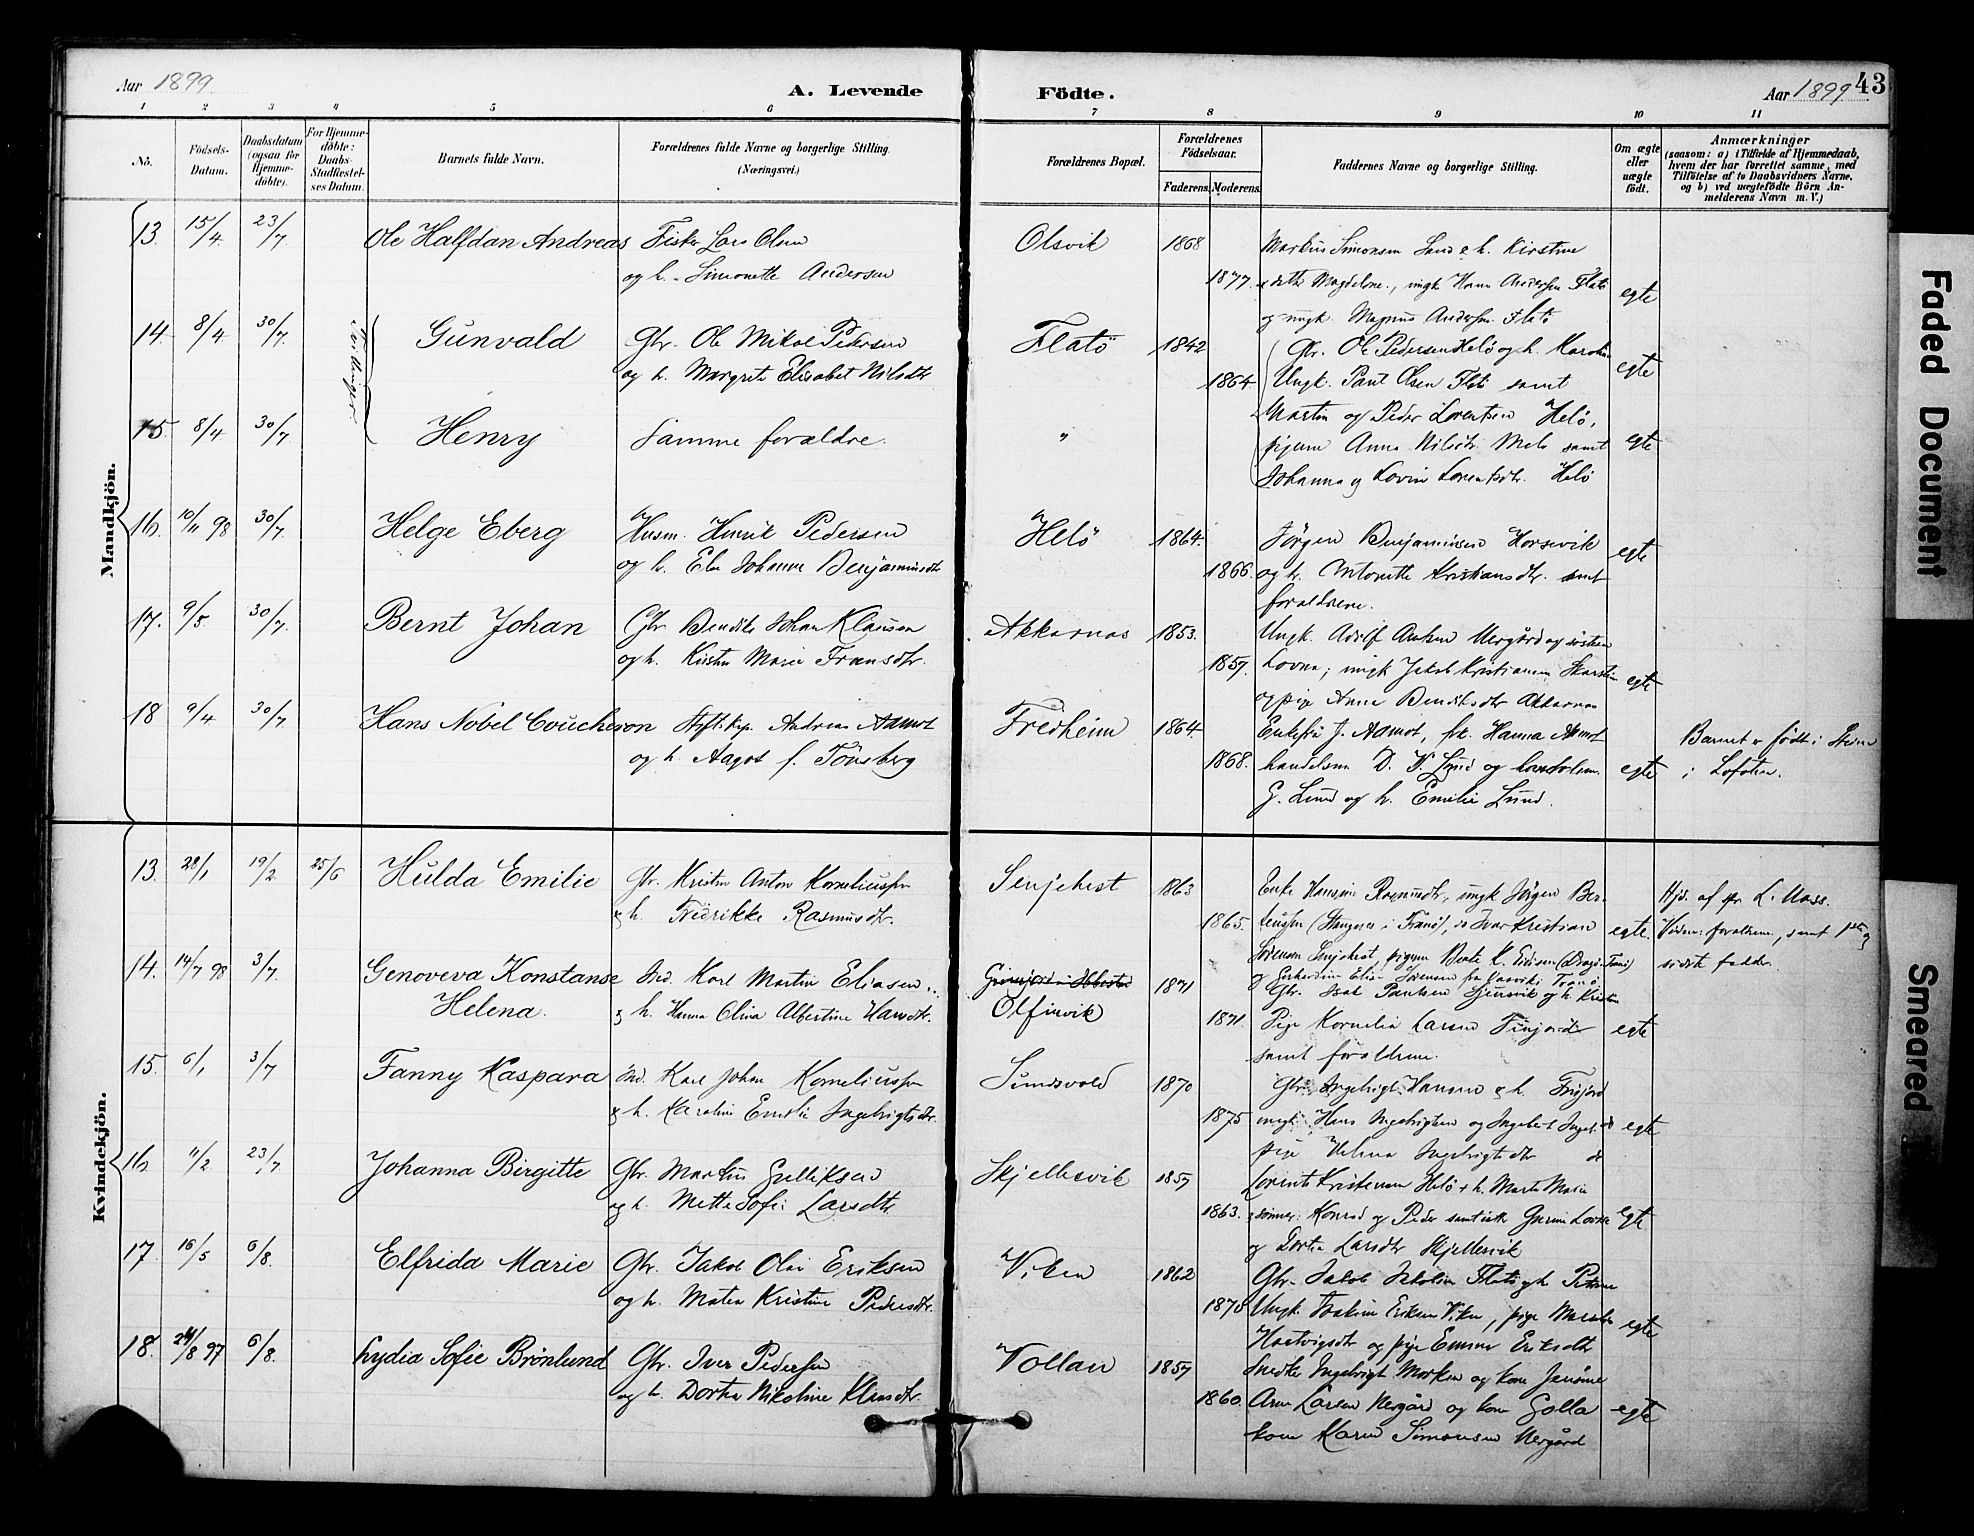 Aar 1899
A. Levende
Födte.
Aar 1899
43
1 2 3 4 5 6 7 8 9 10 11
No.
Födsels-
Datum.
Daabsdatum
(ogsaa for
Hjemme-
döbte).
For Hjemme-
döbte:
Daabs-
Stadfæstel-
ses Datum.
Barnets fulde Navn.
Forældrenes fulde Navne og borgerlige Stilling.
(Næringsvei.)
Forældrenes Bopæl.
Forældrenes
Födselsaar.
Faderens. Moderens.
Faddernes Navne og borgerlige Stilling.
Om ægte
eller
uægte
födt.
Anmærkninger
(saasom: a) i Tilfælde af Hjemmedaab,
hvem der har forrettet samme, med
Tilföielse af to Daabsvidners Navne,
og b) ved uægtefödte Börn An-
melderens Navn m. V.)
Mandkjön.
13. 15/4 23/7 Ole Halfdan Andreas Fisker Lars Olsen Olsvik 1868 Markus Simonsen Lund & h. Kirstine
og h. Simonette Andersen 1877. datter Magdelene, ungk Hans Andersen Flatö egte
og ungk. Magnus Andersen Flatö
14. 8/4 30/7 Tvillinger Gunvald Gbr. Ole Mikal Pedersen Flatö 1842 Gbr. Ole Pedersen Helö og h. Karoline
og h. Margrete Elisabet Nilsdtr 1864 Ungk. Paul Olsen Flatö samt egte
15. 8/4 30/7 Henry Samme forældre. " Martin og Peder Lorentsen Helö,
pigerne Anna Nilsdtr. Melö samt egte
Johanna og Lovise Lorentsdtr. Helö
16. 10/11 98 30/7 Helge Eberg Husm. Henrik Pedersen Helö 1864. Jörgen Benjaminsen Horsevik
og h. Ele Johanna Benjaminsdtr 1866. og h. Antonette Kristiansdtr. samt egte
forældrene.
17. 9/5. 30/7. Bernt Johan Gbr Bendiks Johan Klausen Akkarnas 1853. Ungk. Adolf Nergård og
og h. Kirsten Marie Fransdtr. 1857. Lovna; ungk Jakob Kristiansen egte
og pige Anna Bendiksdtr Akkarnas
18 9/4 30/7 Hans Nobel Coucheron Andreas Aamot Fredheim 1864. Enkefru J. Aamot, frk. Hanna Aamot
og h. Aagot f. Tönsberg 1868. handelsm. D. K. Lund og egte
G. Lund og h. Emilie Lund.
Barnet er födt i
i Lofoten.
Kvindekjön.
13. 28/1 19/2 25/6 Hulda Emilie Gbr. Kristen Anton Korneliussen Senjehest 1863 Enke Hansine Rasmusdtr, ungk Jörgen Ber-
& h. Fredrikke Rasmusdtr. 1865. (Stangnes i Tranö), Ivar Kristian egte.
Hjd. af L. Aass.
Vidner: forældrene, samt
sidste fadder.
14. 14/7 98 3/7. Genoveva Konstanse Ind. Karl Martin Eliasen Olfinvik 1871
Helena. & h. Hanna Olina Albertine Hansdtr. 1871. Pige Kornelia Larsen Finfjord egte
samt forældrene.
15. 6/1 3/7 Fanny Kaspara Ind. Karl Johan Korneliussen Sundsvold 1870 Gbr. Ingebrigt Hansen & h. Trofjord
& h. Karoline Emelie Ingebrigtsdtr. 1875 ungk. Hans Ingebrigtsen og Ingebert egte
pige Helena Ingebrigtsdtr do
16. 11/2. 23/7 Johanna Birgitte Gbr. Markus Gulliksen Skjellesvik 1857 Lorents Kristensen Helö & h. Marte Marie
og h. Mette Sofie Larsdtr 1863. sönner: Konrad og Peder samt egte
og Dortea Larsdtr Skjellesvik
17. 16/5 6/8. Elfrida Marie Gbr. Jakob Olai Eriksen Viken 1862 Gbr. Jakob Flatö & h. Petrine
og h. Matea Kristine Pedersdtr. 1878 Ungk. Joakim Eriksen Viken, pige egte
Hartvigsdtr og pige Emma Eriksdtr
18. 24/8 97 6/8. Lydia Sofie Brönlund Gbr. Iver Pedersen Vollan 1857 Snedker Ingebrigt Morken og kone
og h. Dortea Nikoline Klausdtr. 1860. Arne Larsen Nergård og kone Golla egte
kone Maren Simonsen Nergård
Faded Document
Smeared